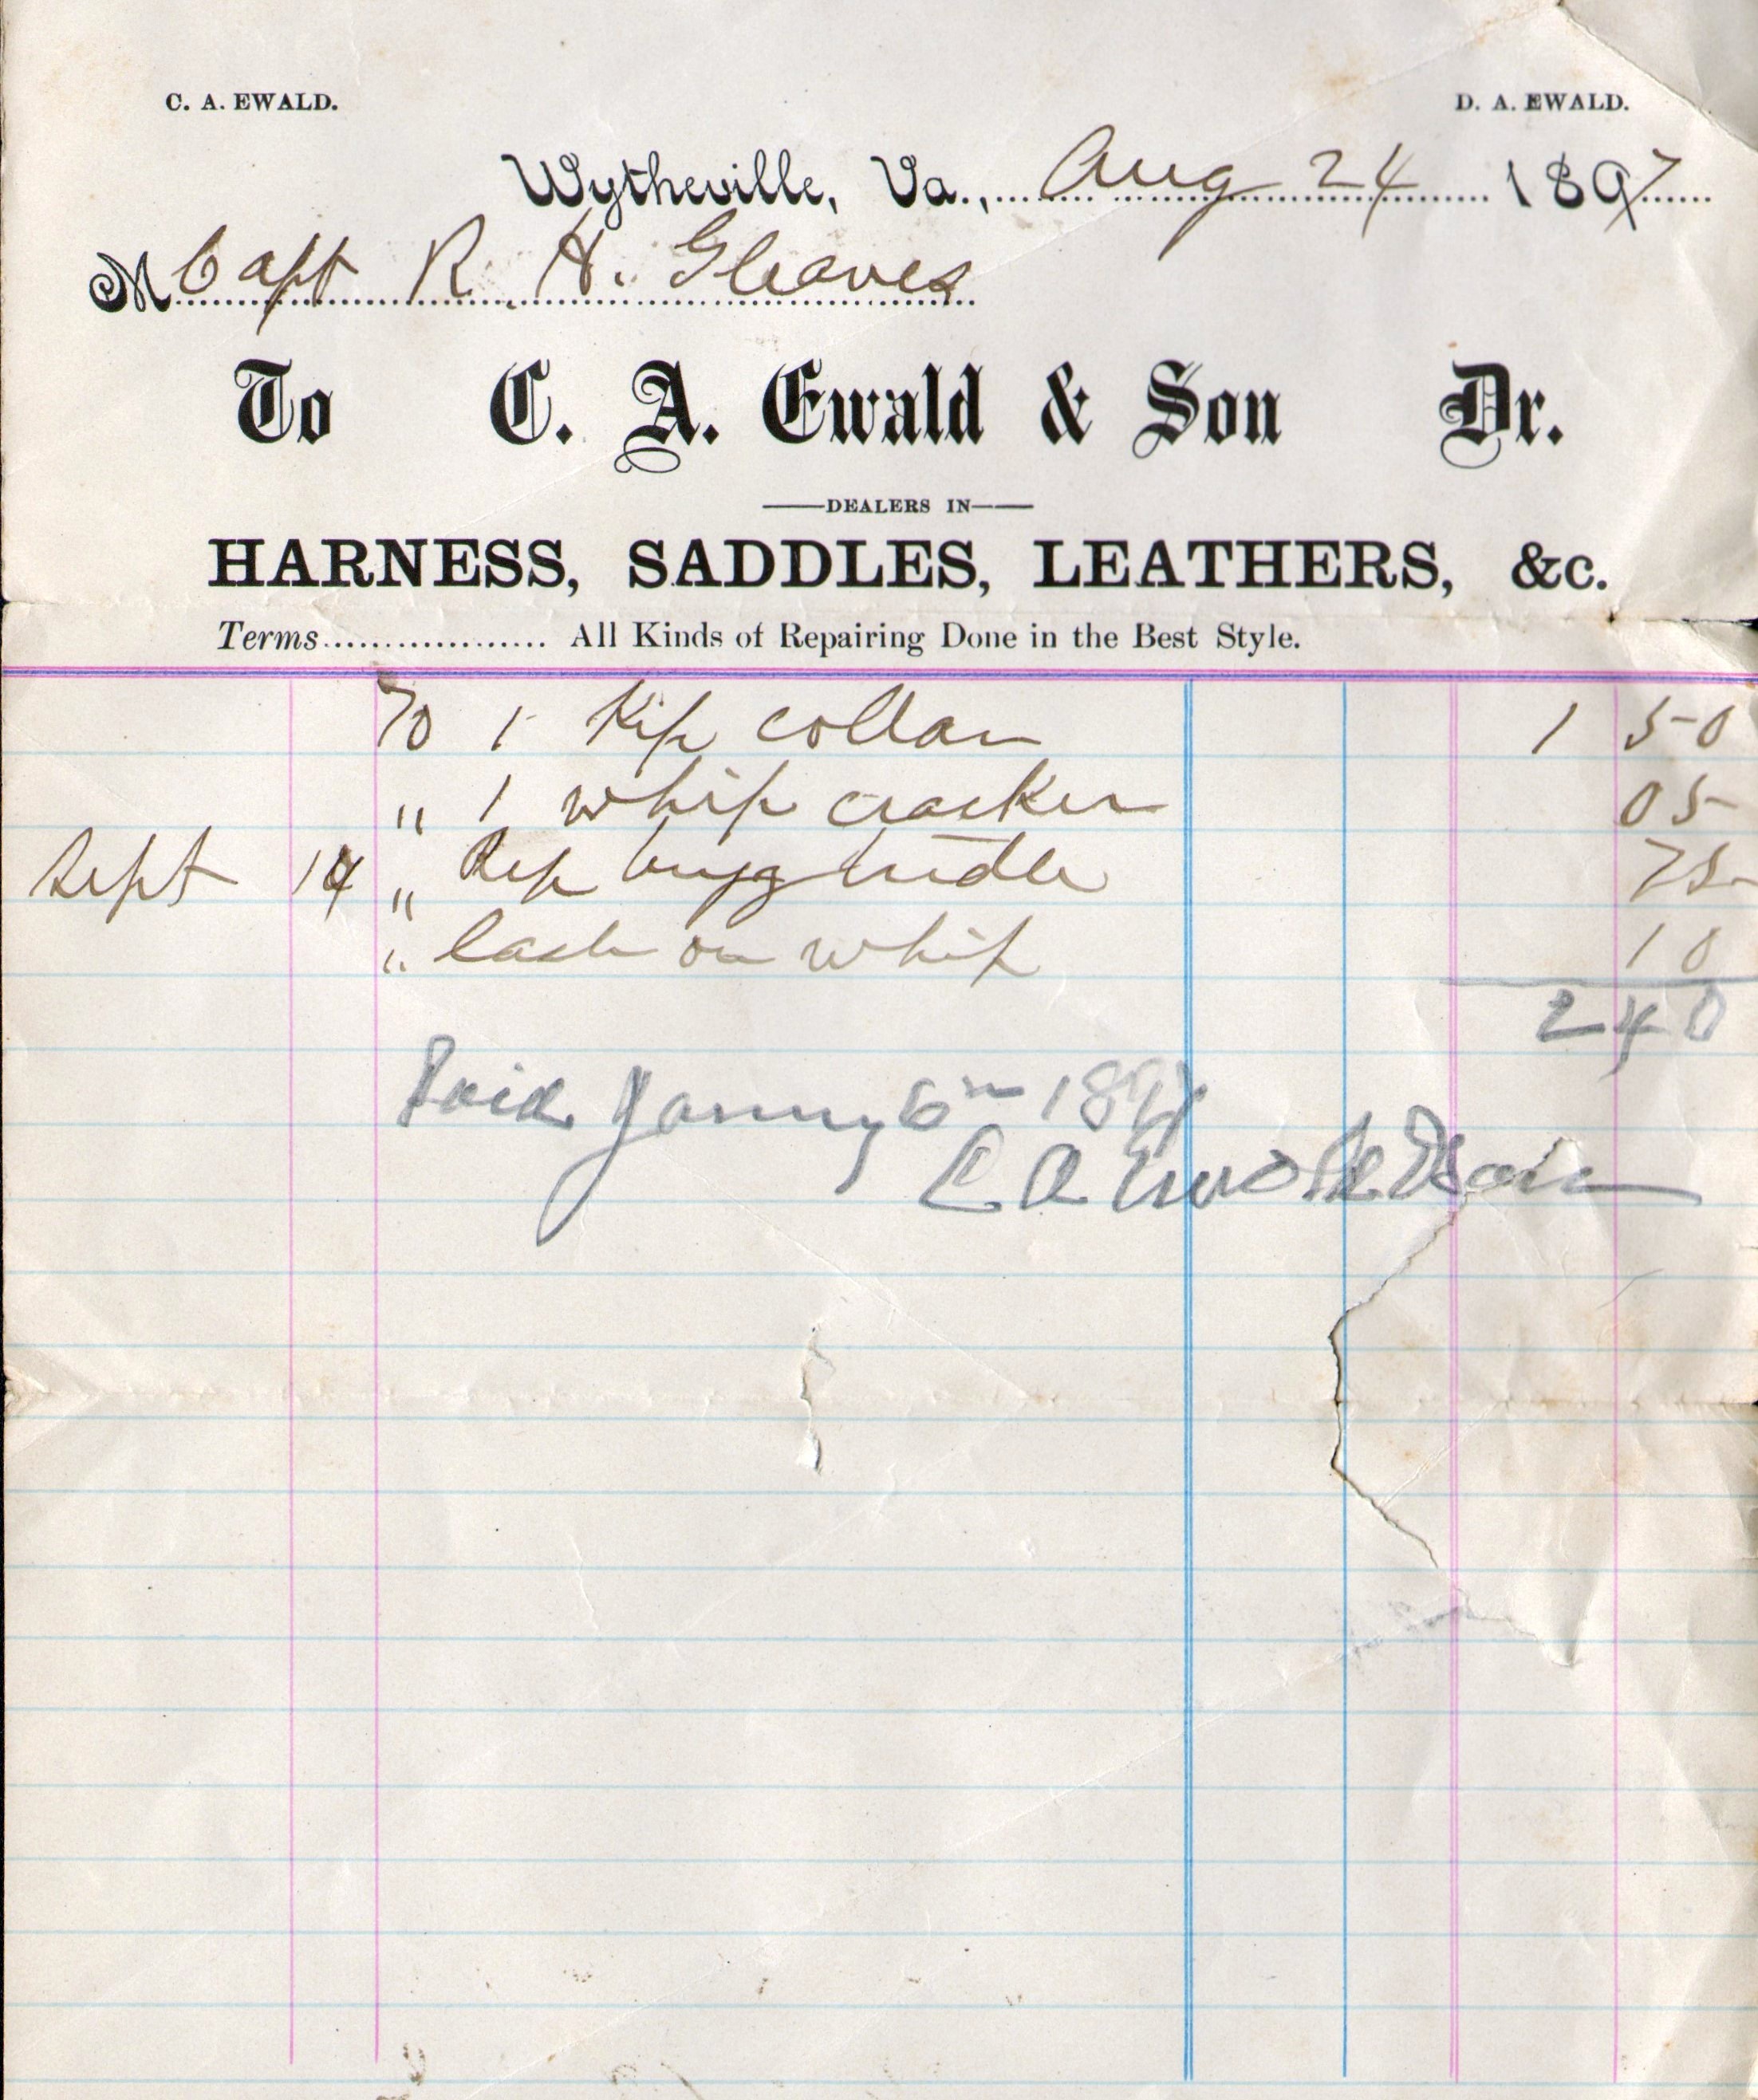 C. A. EWALD. D. A. EWALD.
Wytheville, Va., Aug 24 1897
M Capt R. H. Gleaves
To C. A. Ewald & Son Dr.
DEALERS IN
HARNESS, SADDLES, LEATHERS, &c.
Terms.................. All Kinds of Repairing Done in the Best Style.
To 1 Kip collar 1 50
" 1 whip cracker 05
Sept 14 " Rep bugg bridle 75
" lash on whip 10
2 40
Paid 6th 189
C A Ewald & Son